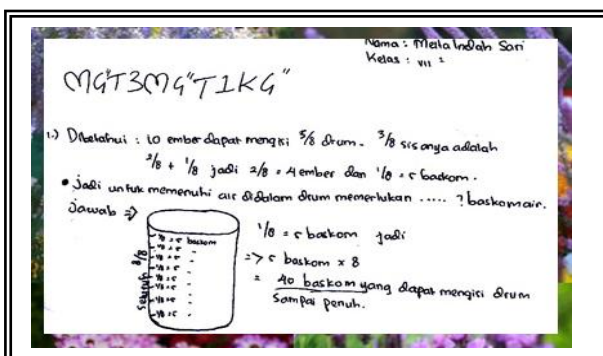 Nama : Meila Indah Sari
Kelas : VII 2
MGT3MG"T1KG"
1.) Diketahui : 10 ember dapat mengisi 5/8 drum. 3/8 sisanya adalah
2/8 + 1/8 jadi 2/8 = 4 ember dan 1/8 = 5 baskom.
• Jadi untuk memenuhi air didalam drum memerlukan ..... ? baskom air.
Jawab =>
1/8 = 5 baskom
1/8 = 5 "
1/8 = 5 "
1/8 = 5 "
1/8 = 5 "
1/8 = 5 "
1/8 = 5 "
1/8 = 5 "
8/8
1/8 = 5 baskom jadi
=> 5 baskom x 8
= 40 baskom yang dapat mengisi drum
sampai penuh.